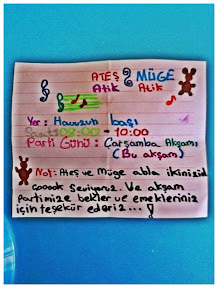 ATEŞ MÜGE
Atik Atik
Yer: Havuzun başı
Saat: 08:00 - 10:00
Parti Günü: Çarşamba Akşamı
(Bu akşam)
Not: Ateş ve Müge abla ikinizide
çooook Seviyoruz. Ve akşam
partimize bekler ve emekleriniz
için teşekür ederiz...